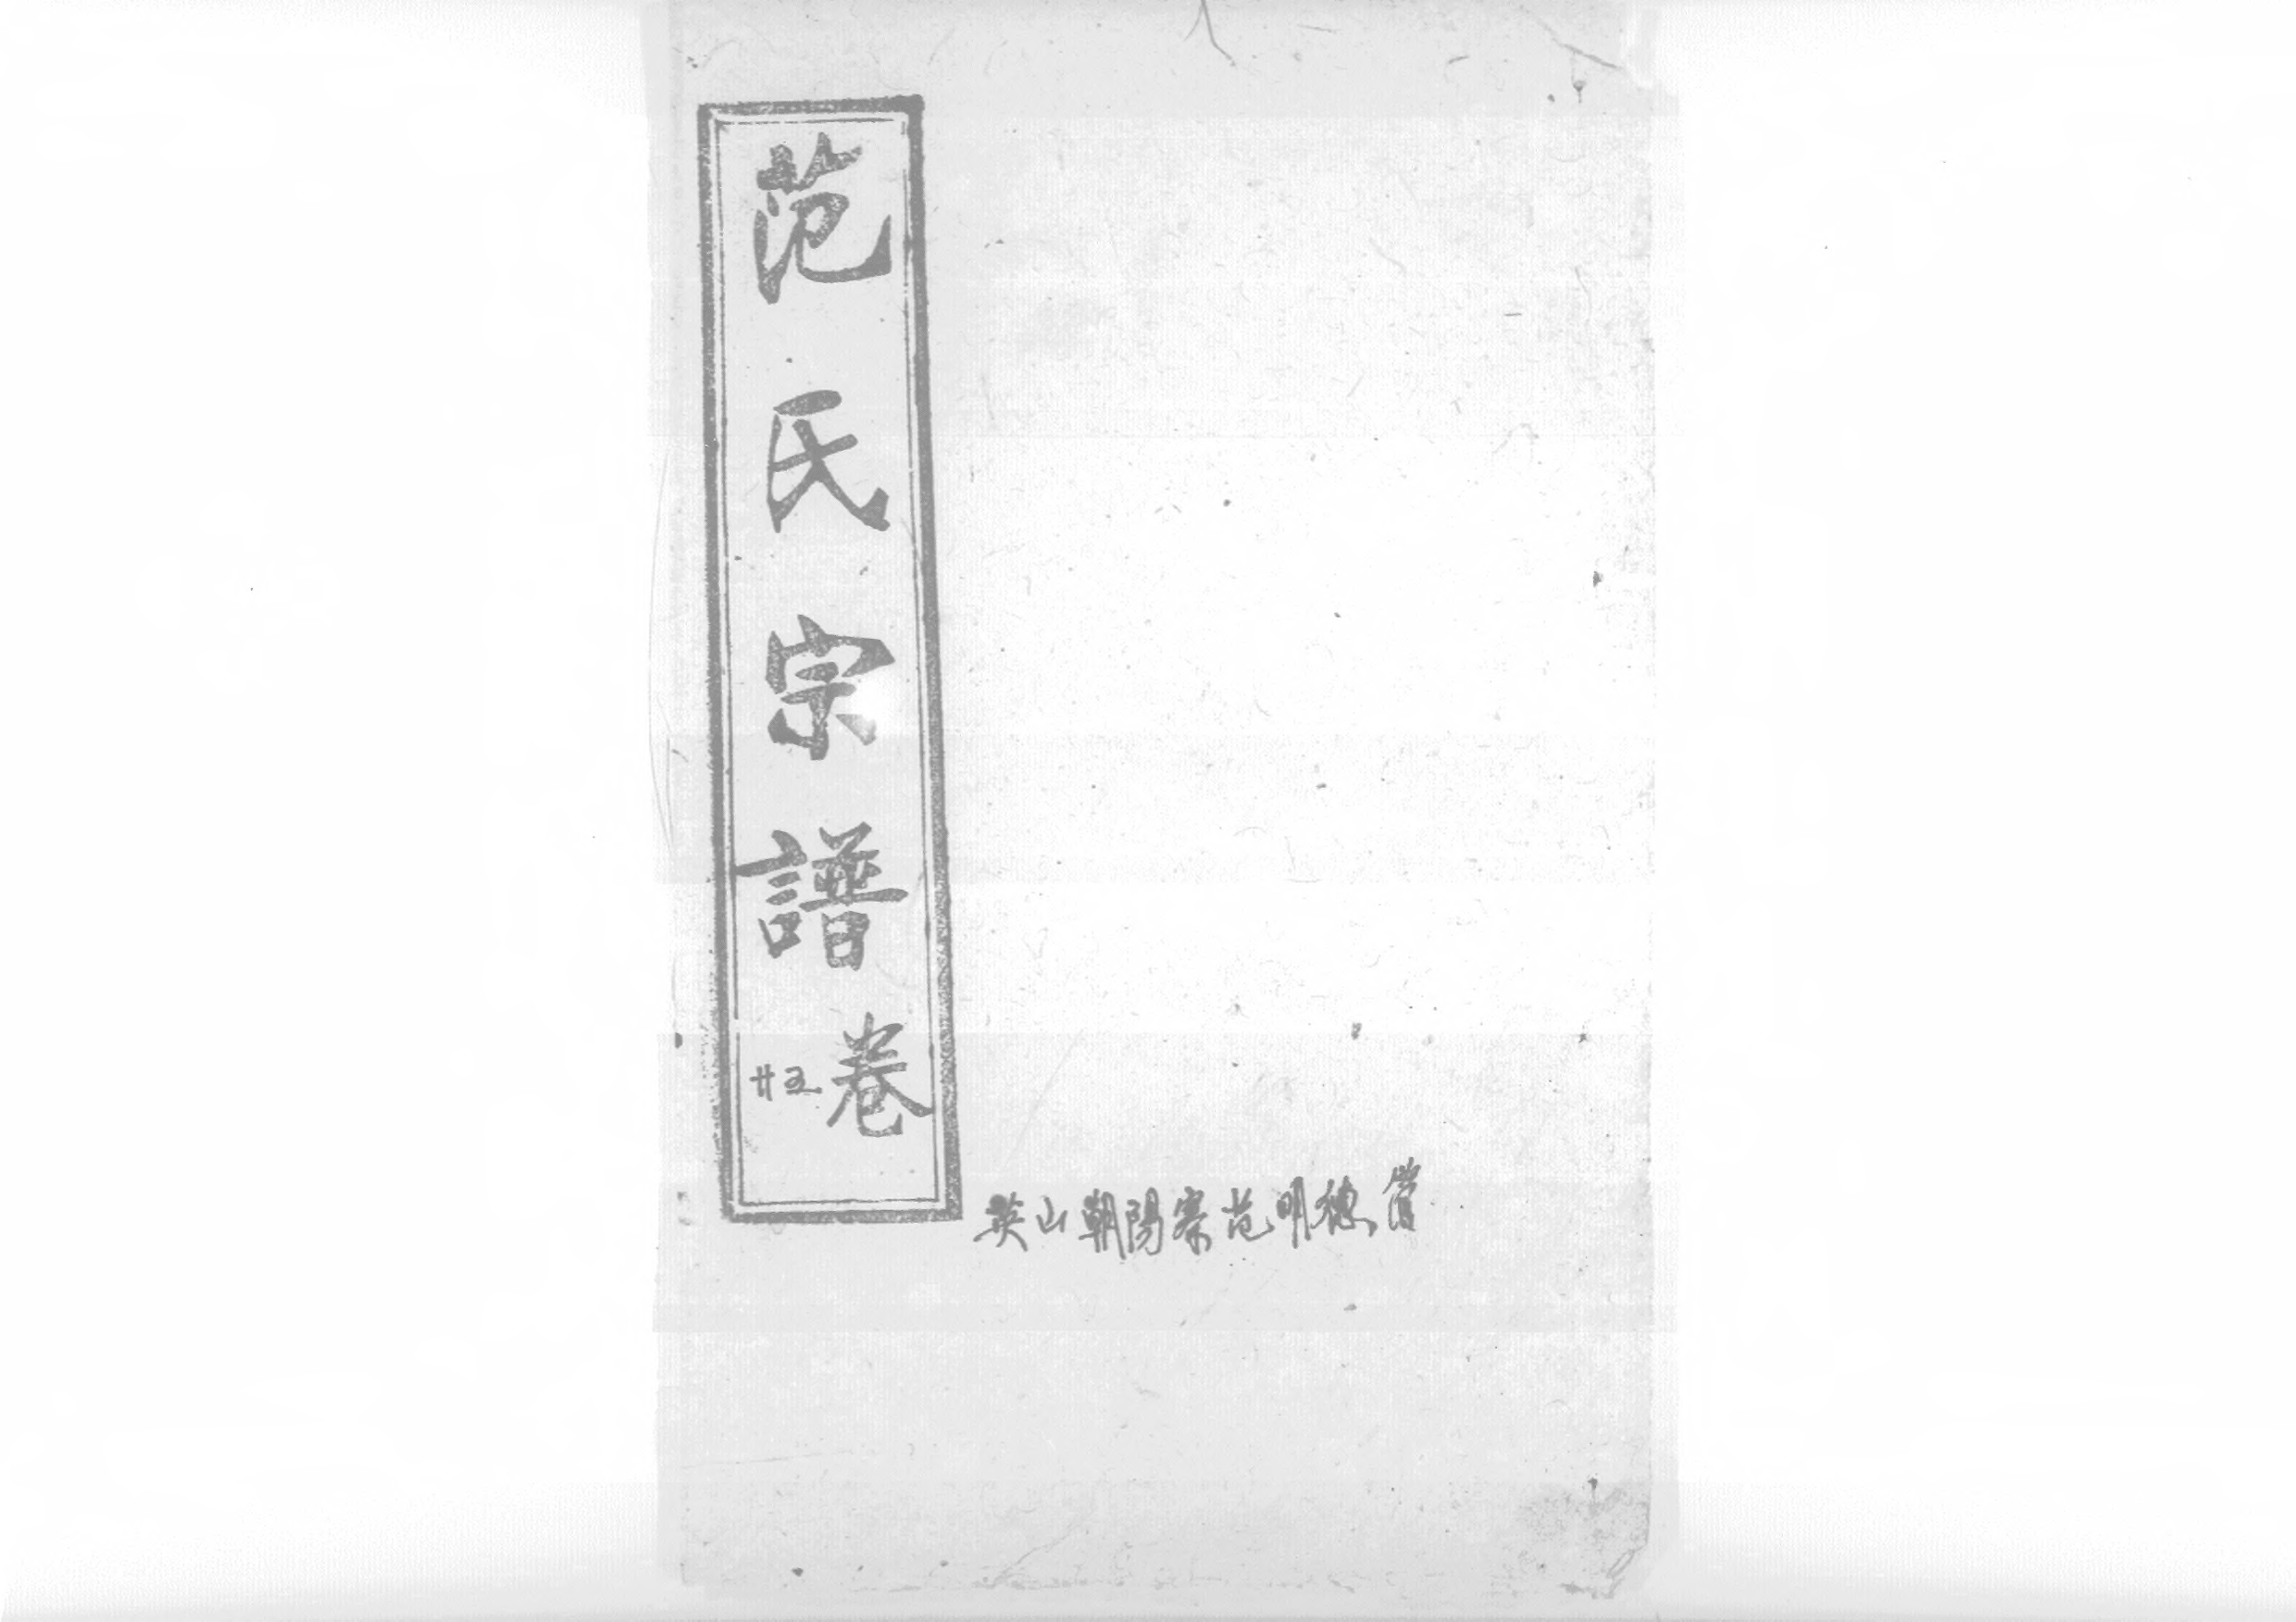 范氏宗譜卷
廿五
英山朝陽寨范明穗管